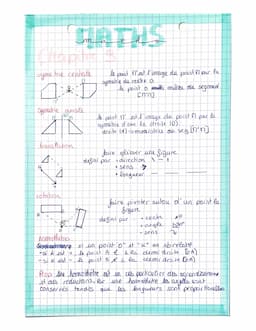 MATHS
Chapitre 3
symétrie centrale
le point M' est l'image du point M par la
symétrie de centre O
le point O milieu du segment
[MM']
symétrie axiale
le point M' est l'image du point M par la
symétrie d'axe la droite (D).
droite (d) = médiatrice du seg [M'M]
translation
faire glisser une figure
défini par • direction
• sens
• longueur
rotation
faire pivoter autour d'un point la
figure
défini par • centre
• angle
• sens
homothétie
si un point O et "k"
- si k est
- si k est
Prop une homothétie est un cas particulier des agrandissements
et des réductions. Par une homothétie les angles sont
conservés tandis que les longueurs sont proportionnelles